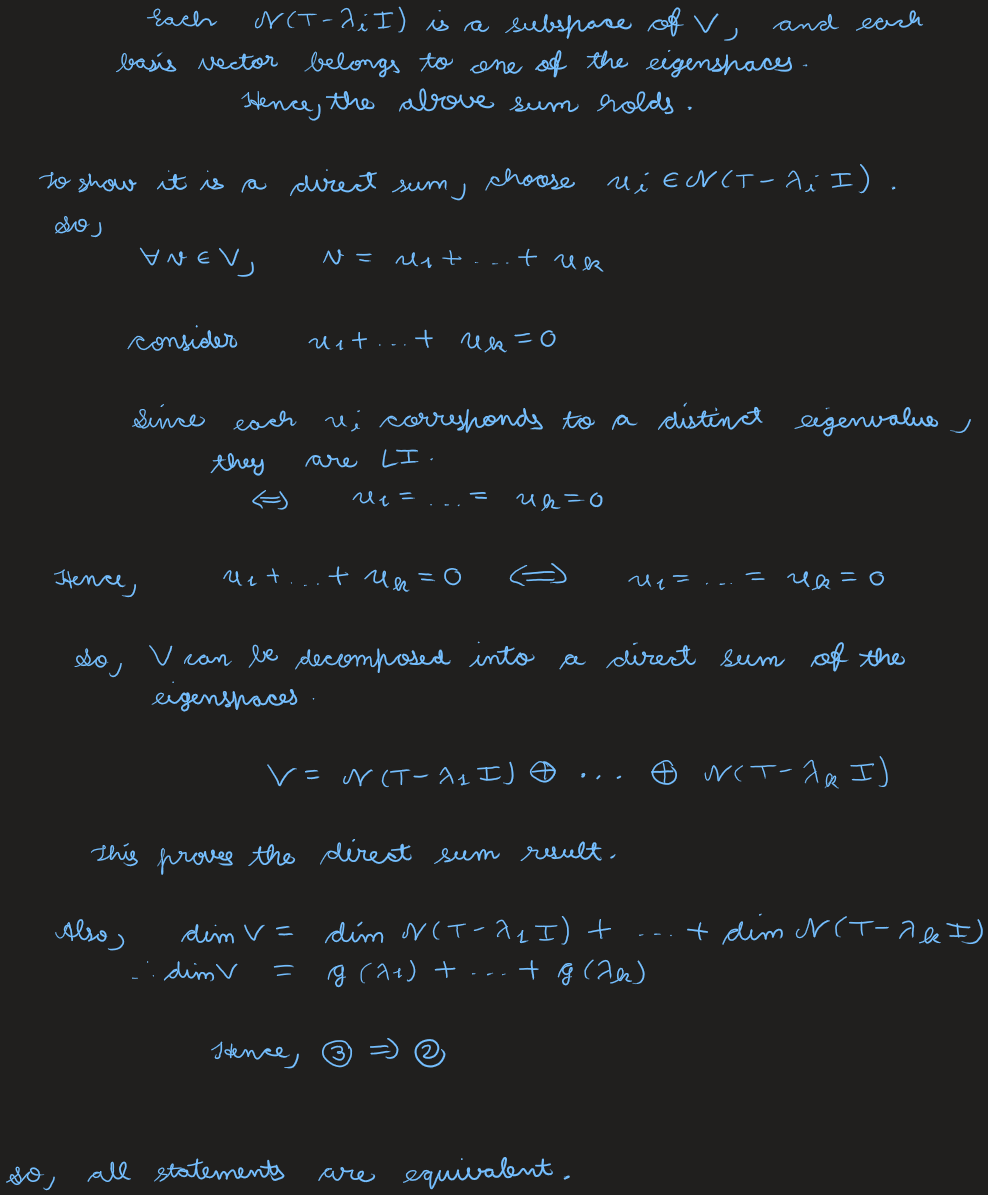 Each N(T-λᵢI) is a subspace of V, and each
basis vector belongs to one of the eigenspaces.
Hence, the above sum holds.
To show it is a direct sum, choose uᵢ ∈ N(T-λᵢI).
So,
∀ v ∈ V, v = u₁ + ... + uₖ
consider u₁ + ... + uₖ = 0
Since each uᵢ corresponds to a distinct eigenvalue,
they are LI.
⇔ u₁ = ... = uₖ = 0
Hence, u₁ + ... + uₖ = 0 ⇔ u₁ = ... = uₖ = 0
So, V can be decomposed into a direct sum of the
eigenspaces.
V = N(T-λ₁I) ⊕ ... ⊕ N(T-λₖI)
This proves the direct sum result.
Also, dim V = dim N(T-λ₁I) + ... + dim N(T-λₖI)
∴ dim V = g(λ₁) + ... + g(λₖ)
Hence, ③ ⇒ ②
So, all statements are equivalent.